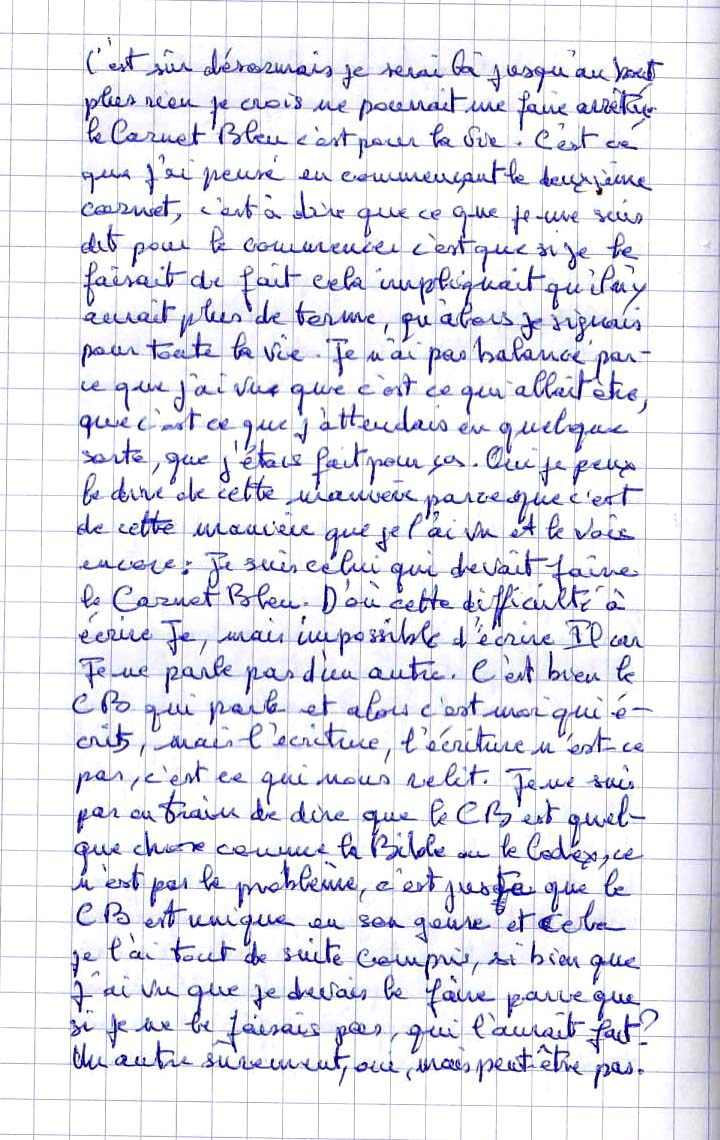 C'est sûr désormais je serai là jusqu'au bout
plus rien je crois ne pourrait me faire arrêter
le Carnet Bleu c'est pour la vie. C'est ce
que j'ai pensé en commençant le deuxième
carnet, c'est à dire que ce que je me suis
dit pour le commencer c'est que si je le
faisait de fait cela impliquait qu'il n'y
aurait plus de terme, qu'alors je signais
pour toute la vie. Je n'ai pas balancé par-
ce que j'ai vu que c'est ce qui allait être,
que c'est ce que j'attendais en quelque
sorte, que j'étais fait pour ça. Oui je peux
le dire de cette manière parce que c'est
de cette manière que je l'ai vu et le vois
encore : Je suis celui qui devait faire
le Carnet Bleu. D'où cette difficulté à
écrire Je, mais impossible d'écrire Il car
Je ne parle pas d'un autre. C'est bien le
CB qui parle et alors c'est moi qui é-
crits, mais l'écriture, l'écriture n'est-ce
pas, c'est ce qui nous relit. Je ne suis
pas en train de dire que le CB est quel-
que chose comme la Bible ou le Codex, ce
n'est pas le problème, c'est juste que le
CB est unique en son genre et cela
je l'ai tout de suite compris, si bien que
j'ai vu que je devais le faire parce que
si je ne le faisais pas, qui l'aurait fait ?
Un autre sûrement, oui, mais peut-être pas.